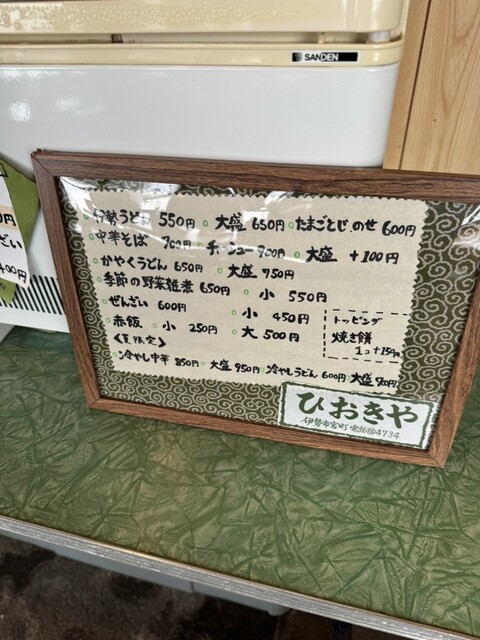 SANDEN
伊勢うどん 550円 大盛 650円 たまごとじのせ 600円
中華そば 700円 チャーシュー 900円 大盛 +100円
かやくうどん 650円 大盛 750円
季節の野菜雑煮 650円 小 550円
ぜんざい 600円 小 450円
赤飯 小 250円 大 500円
トッピング
焼き餅
1コ+150円
<夏限定>
冷やし中華 850円 大盛 950円 冷やしうどん 600円 大盛 700円
ひおきや
伊勢市宮町
4734
0円
ざい
400円